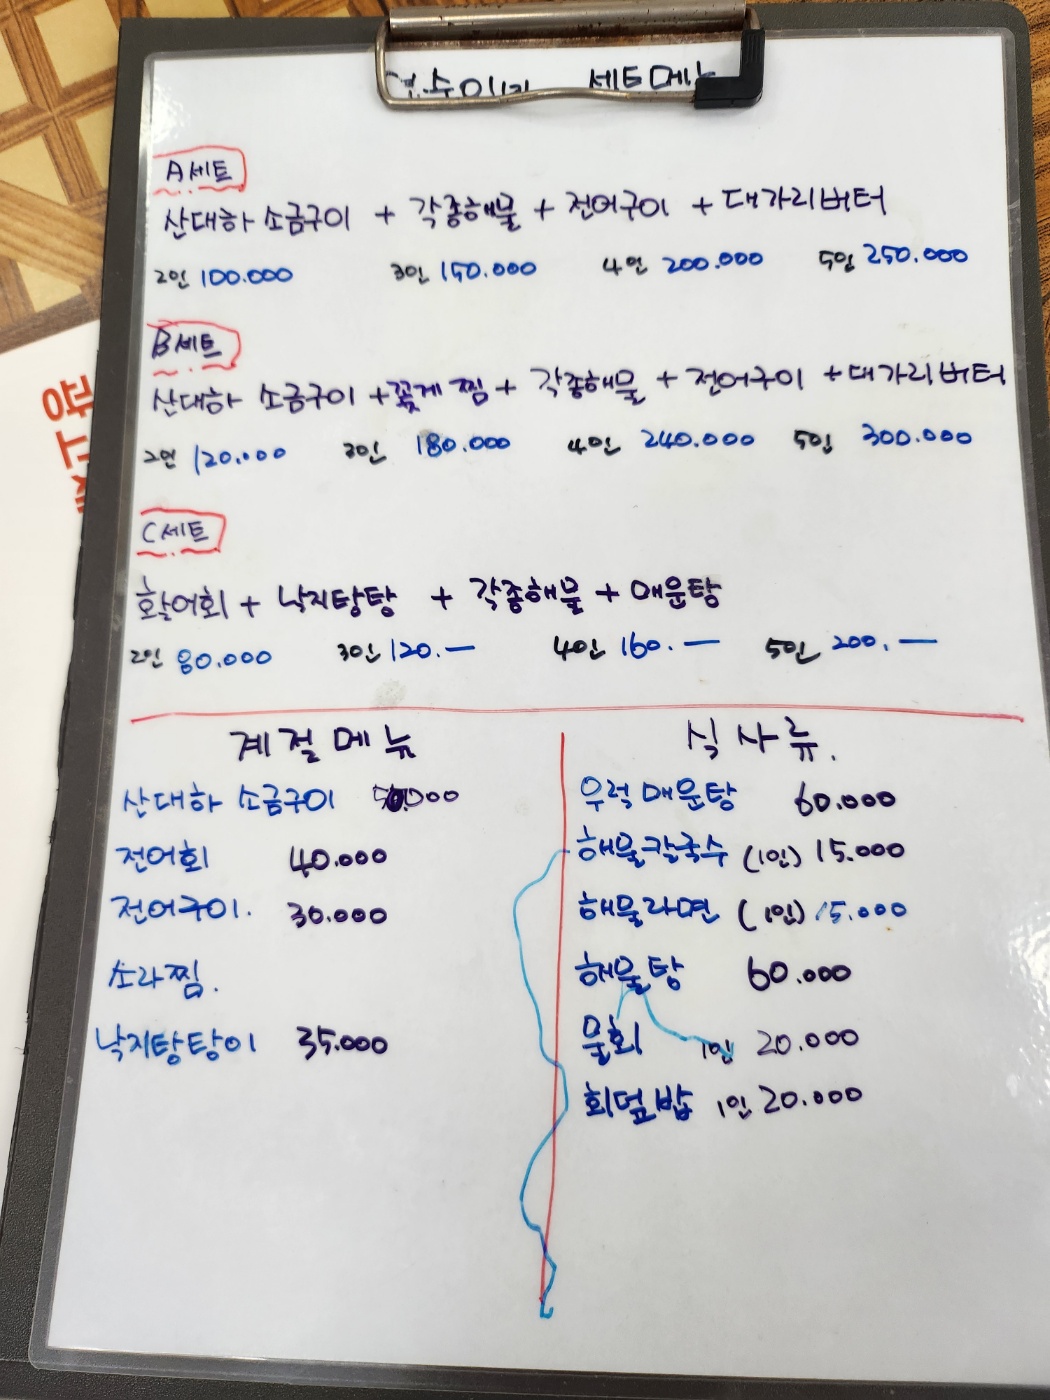 세트메뉴
A세트
산대하 소금구이 + 각종해물 + 전어구이 + 대가리버터
2인 100.000 3인 150.000 4인 200.000 5인 250.000
B세트
산대하 소금구이 + 꽃게찜 + 각종해물 + 전어구이 + 대가리버터
2인 120.000 3인 180.000 4인 240.000 5인 300.000
C세트
활어회 + 낙지탕탕 + 각종해물 + 매운탕
2인 80.000 3인 120.— 4인 160.— 5인 200.—
계절메뉴
산대하 소금구이
전어회 40.000
전어구이. 30.000
소라찜.
낙지탕탕이 35.000
식사류.
우럭매운탕 60.000
해물칼국수 (1인) 15.000
해물라면 (1인) 15.000
해물탕 60.000
물회 1인 20.000
회덮밥 1인 20.000